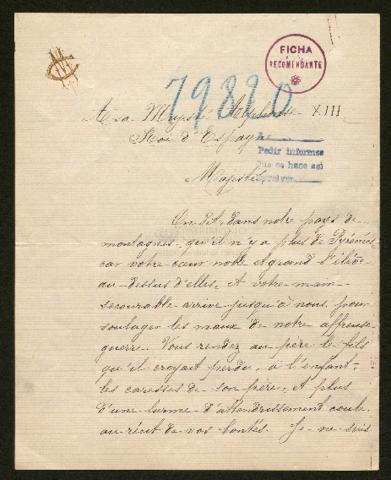 FICHA
RECOMENDANTE
79890
A sa Majesté Alphonse XIII
Roi d'Espagne
Pedir informes
Que se hace aqi
Majesté
On dit, dans notre pays de
montagnes, qu'il n'y a plus de Pyrénées
car votre cœur noble et grand s'élève
au dessus d'elles, et votre main
secourable arrive jusqu'à nous pour
soulager les maux de notre affreuse
guerre. Vous rendez au père le fils
qu'il croyait perdu, à l'enfant
les caresses de son père, et plus
d'une larme d'attendrissement coule
au récit de vos bontés. Je ne suis